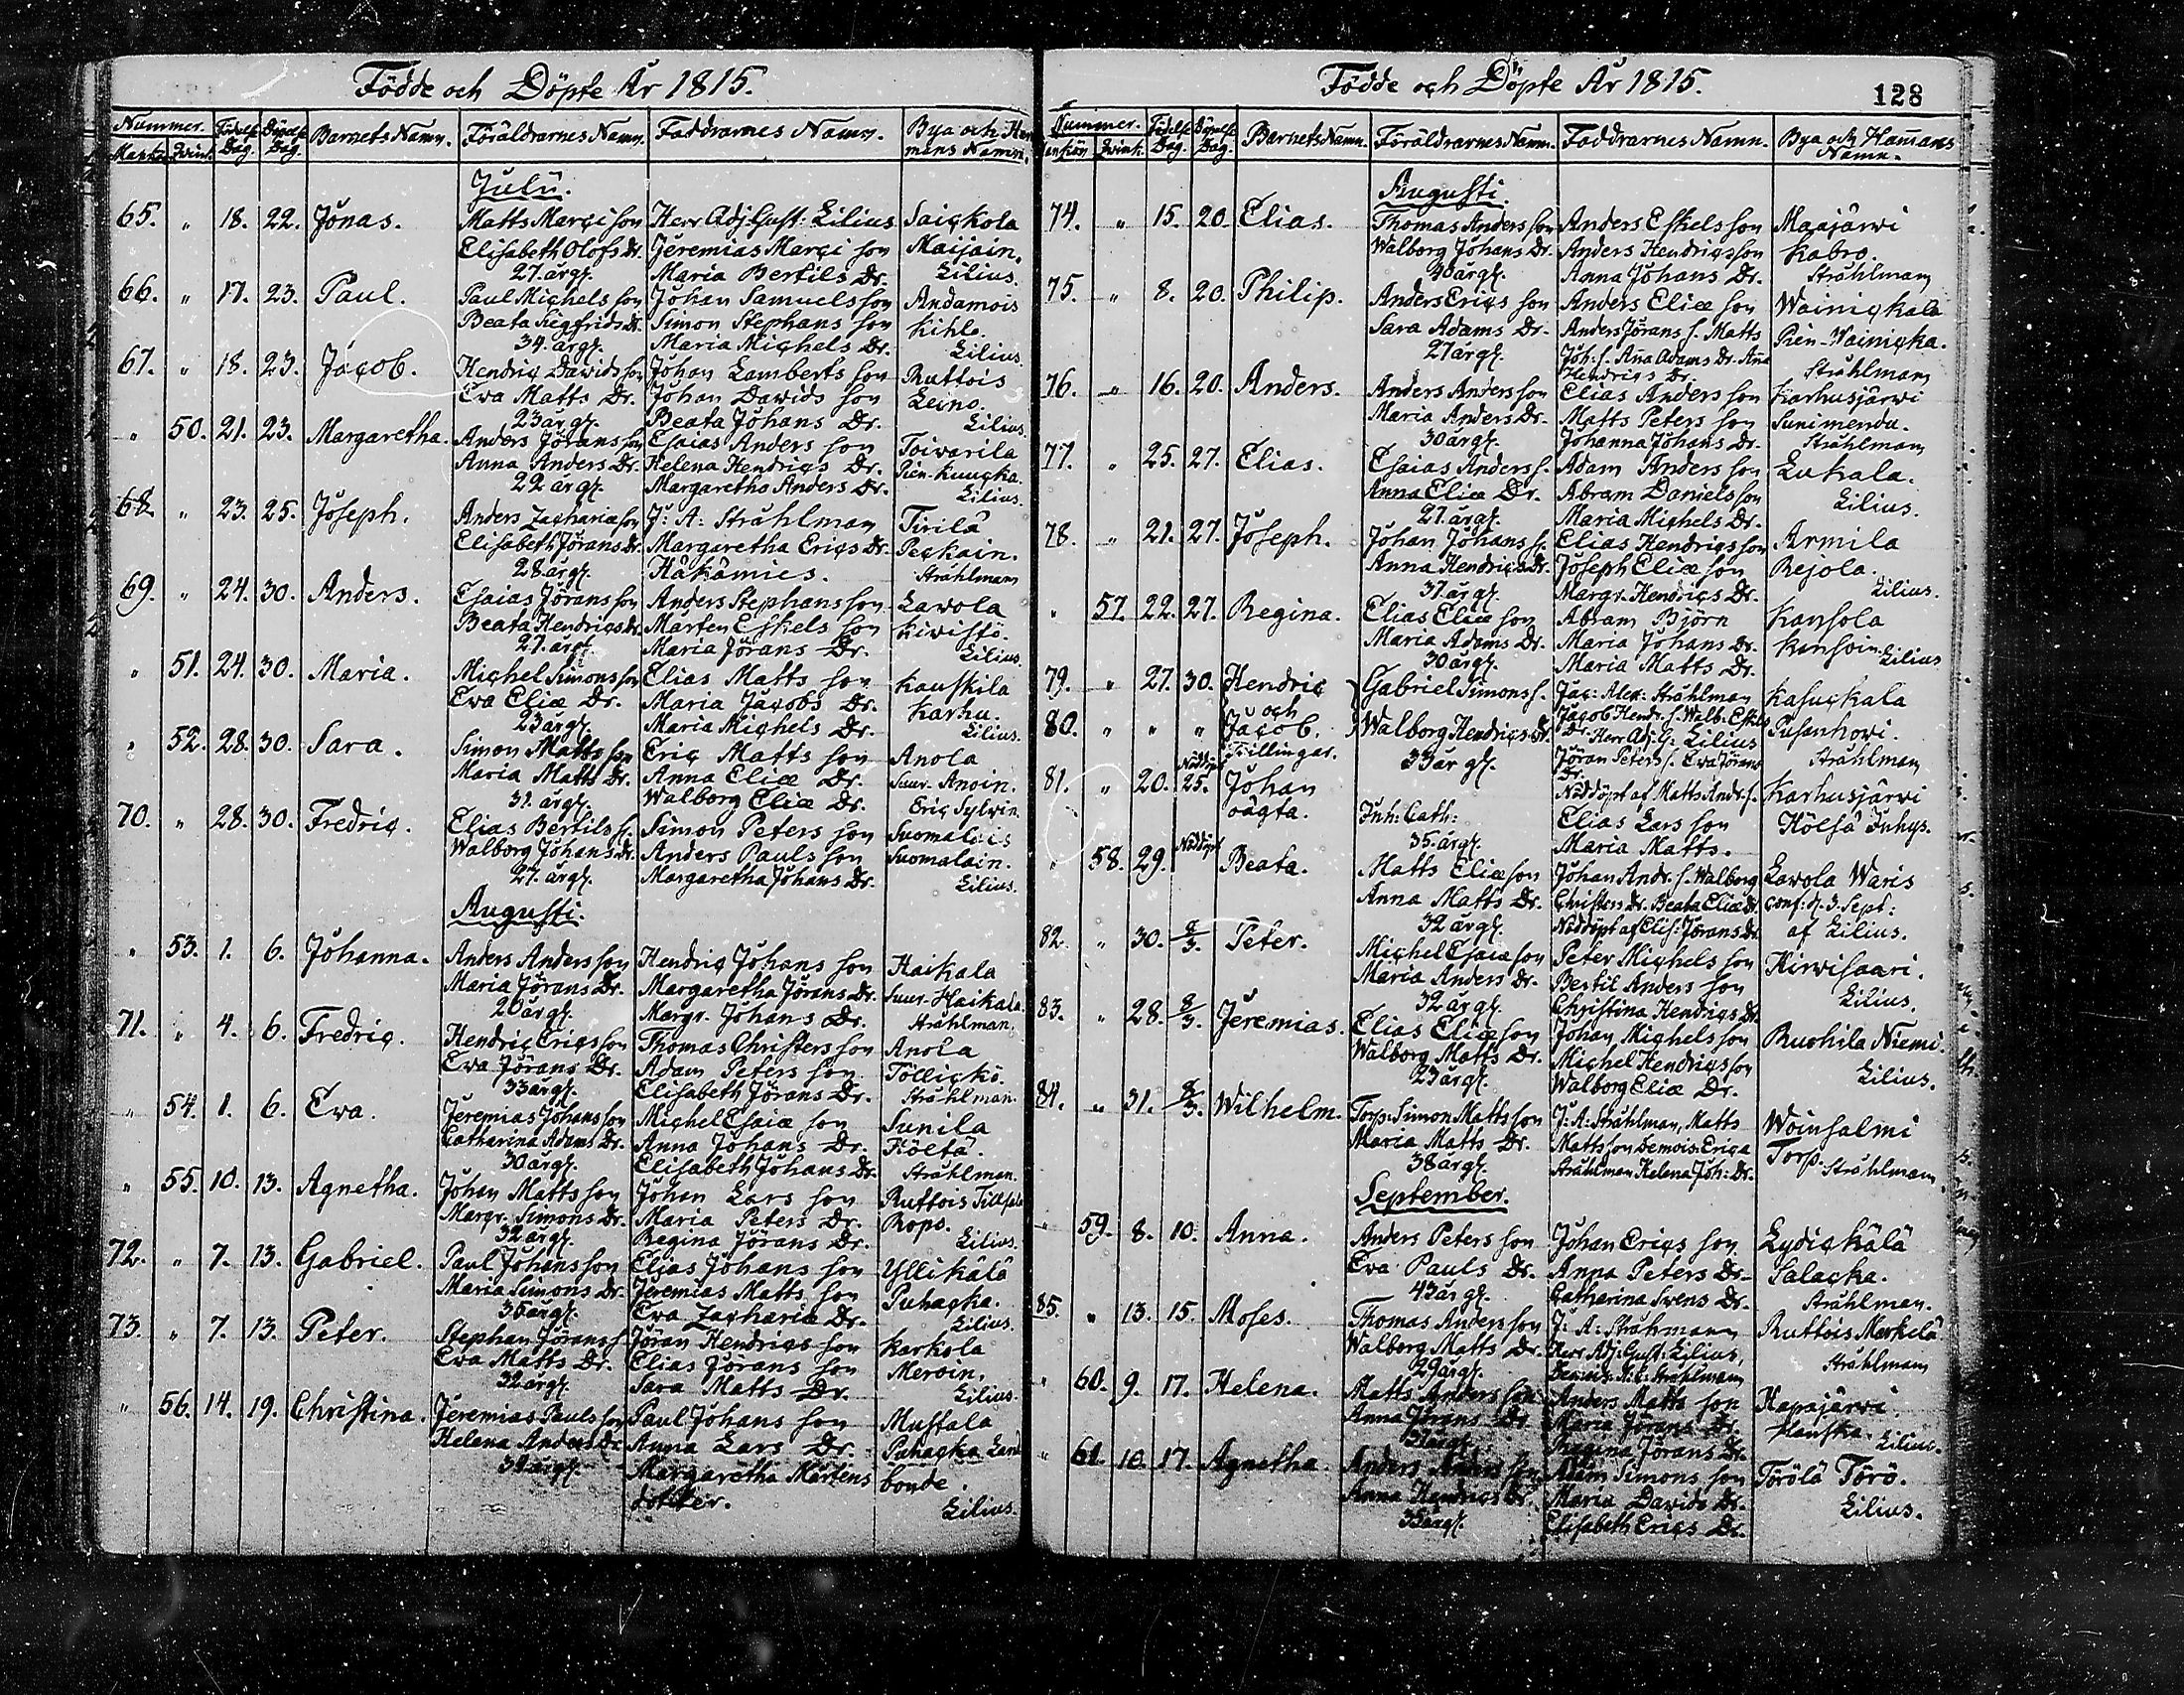 Födde och Döpte År 1815.
Nummer. Födelse Dag. Döpelse Dag. Barnets Namn. Föräldrarnes Namn. Faddrarnes Namn. Bya och Hem
Mank. Qvink. mans Namn.
Julii.
65. " 18. 22. Jonas. Matts Marci son Herr Adj. Gust: Lilius Saickola
Elisabeth Olofs Dr. Jeremias Marci son Maijain.
27. årgl. Maria Bertils Dr. Lilius.
66. " 17. 23. Paul. Paul Michels son Johan Samuels son Andamois
Beata Sigfrids Dr. Simon Stephans son Kihlo.
34. årgl. Maria Michels Dr. Lilius.
67. " 18. 23. Jacob. Hendric Davids son Johan Lamberts son Ruttois
Eva Matts Dr. Johan Davids son Leino.
23 årgl. Beata Johans Dr. Lilius.
" 50. 21. 23. Margaretha. Anders Jörans son Esaias Anders son Toivarila
Anna Anders Dr. Helena Hendrics Dr. Pien-Kuucka.
22 årgl. Margaretha Anders Dr. Lilius.
68. " 23. 25. Joseph. Anders Zachariæ son J: A: Stråhlman Tirilä
Elisabeth Jörans Dr. Margaretha Erics Dr. Peckain.
28. årgl. Häkämies. Stråhlman
69. " 24. 30. Anders. Esaias Jörans son Anders Stephans son Lavola
Beata Hendrics Dr. Marten Eskels son Kiwistö.
27. årgl. Maria Jörans Dr. Lilius.
" 51. 24. 30. Maria. Michel Simons son Elias Matts son Kauskila
Eva Eliæ Dr. Maria Jacobs Dr. Karhu.
23 årgl. Maria Michels Dr. Lilius.
" 52. 28. 30. Sara. Simon Matts son Eric Matts son Anola
Maria Matts Dr. Anna Eliæ Dr. Suur Anoin.
31. årgl. Walborg Eliæ Dr. Eric Sylvin.
70. " 28. 30. Fredric. Elias Bertils s. Simon Peters son Suomalais
Walborg Johans Dr. Anders Pauls son Suomalain.
27. årgl. Margaretha Johans Dr. Lilius.
Augusti.
" 53. 1. 6. Johanna. Anders Anders son Hendric Johans son Haikala
Maria Jörans Dr. Margaretha Jörans Dr. Suur Haikala
20 årgl. Margr. Johans Dr. Stråhlman.
71. " 4. 6. Fredric. Hendric Erics son Thomas Christers son Anola
Eva Jörans Dr. Adam Peters son Töllickö.
33 årgl. Elisabeth Jörans Dr. Stråhlman.
" 54. 1. 6. Eva. Jeremias Johans son Michel Esaiæ son Sunila
Catharina Adams Dr. Anna Johans Dr. Költä.
30 årgl. Elisabeth Johans Dr. Stråhlman.
" 55. 10. 13. Agnetha. Johan Matts son Johan Lars son Ruttois
Margr. Simons Dr. Maria Peters Dr. Rops.
32 årgl. Regina Jörans Dr. Lilius.
72. " 7. 13. Gabriel. Paul Johans son Elias Johans son Yllikälä
Maria Simons Dr. Jeremias Matts son Puhacka.
36 årgl. Eva Zachariæ Dr. Lilius.
73. " 7. 13. Peter. Stephan Jörans s. Jöran Hendrics son Karkola
Eva Matts Dr. Elias Jörans son Meroin.
32 årgl. Sara Matts Dr. Lilius.
" 56. 14. 19. Christina. Jeremias Pauls son Paul Johans son Mustala
Helena Anders Dr. Anna Lars Dr. Puhacka Land
34 årgl. Margaretha Mårtens bonde
dotter. Lilius.
Födde och Döpte År 1815. 128
Nummer. Födelse Dag. Döpelse Dag. Barnets Namn. Föräldrarnes Namn. Faddrarnes Namn. Bya och Hemans
Mankön Qvink. Namn.
Augusti.
74. " 15. 20. Elias. Thomas Anders son Anders Eskels son Maajärwi
Walborg Johans Dr. Anders Hendrics son Kabro.
30 årgl. Anna Johans Dr. Stråhlman
75. " 8. 20. Philip. Anders Erics son Anders Eliæ son Wainickala
Sara Adams Dr. Anders Jörans s. Matts Pien-Wainicka.
27 årgl. Joh: s. Aña Adams Dr. Aña
Hendrics Dr. Stråhlman
76. " 16. 20. Anders. Anders Anders son Elias Anders son Karhusjärwi
Maria Anders Dr. Matts Peters son Sunimendu.
30 årgl. Johanna Johans Dr. Stråhlman
77. " 25. 27. Elias. Esaias Anders s. Adam Anders son Lukala.
Anna Eliæ Dr. Abram Daniels son Lilius.
27 årgl. Maria Michels Dr.
78. " 21. 27. Joseph. Johan Johans s. Elias Hendrics son Armila
Anna Hendrics Dr. Joseph Eliæ son Rejola.
37 årgl. Margr. Hendrics Dr. Lilius.
" 57. 22. 27. Regina. Elias Eliæ son Abram Björn Kansola
Maria Adams Dr. Maria Johans Dr. Kansoin. Lilius
30 årgl. Maria Matts Dr.
79. " 27. 30. Hendric Gabriel Simons s. Jac: Alex: Stråhlman Kasuckala
och Jacob Hendr. s. Walb: Eskils
80. " " " Jacob. Walborg Hendrics Dr. Dr. Herr Adj: G: Lilius Pusankowi.
Tvillingar. 33 årgl. Jöran Peters s. Eva Jörans Dr. Stråhlman
81. " 20. Nöddöpt 25. Johan Nöddöpt af Matts Andr. s. Karhusjärwi
oägta. Inh: Cath: Elias Lars son Höltä Inhys.
35. årgl. Maria Matts.
" 58. 29. Nöddöpt Beata. Matts Eliæ son Johan Andr. s. Walborg Lavola Waris
Anna Matts Dr. Christers Dr. Beata Eliæ Dr. conf: d. 3. Sept:
32 årgl. Nöddöpt af Elis: Jörans Dr. af Lilius.
82. " 30. 8/3. Peter. Michel Esaiæ son Peter Michels son Hirvisaari.
Maria Anders Dr. Bertil Anders son Lilius.
32 årgl. Christina Hendrics Dr.
83. " 28. 8/3. Jeremias. Elias Eliæ son Johan Michels son Ruohila Niemi.
Walborg Matts Dr. Michel Hendrics son Lilius.
23 årgl. Walborg Eliæ Dr.
84. " 31. 8/3. Wilhelm. Torp: Simon Matts son J: A: Stråhlman, Matts Woinsalmi
Maria Matts Dr. Matts son Demois: Erica Torp.
38 årgl. Stråhlman Helena Joh: Dr. Stråhlman.
September.
" 59. 8. 10. Anna. Anders Peters son Johan Erics son Lydickälä
Eva Pauls Dr. Anna Peters Dr. Salacka.
43 årgl. Catharina Svens Dr. Stråhlman.
85. " 13. 15. Moses. Thomas Anders son J: A: Stråhmann Ruttois Merkelä
Walborg Matts Dr. Herr Adj: Gust: Lilius, Stråhlman
29 årgl. Stråhlman
" 60. 9. 17. Helena. Matts Anders son Anders Matts son Hapajärwi.
Anna Jörans Dr. Maria Jörans Dr. Hanska. Lilius.
31 årgl. Regina Jörans Dr.
" 61. 10. 17. Agnetha. Anders son Adam Simons son Törölä Törö.
Anna Hendrics Dr. Maria Davids Dr. Lilius.
35 årgl. Elisabeth Erics Dr.